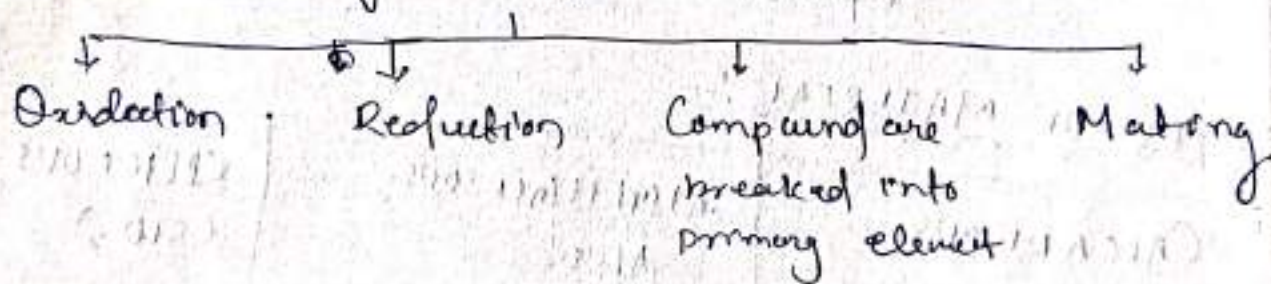 Oxidation . Reduction Compound are Making
breaked into
primary element